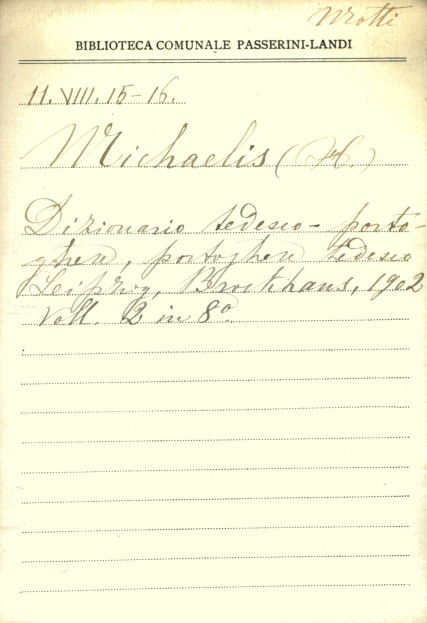 BIBLIOTECA COMUNALE PASSERINI-LANDI
11. VIII. 15-16.
Michaelis (H.)
Dizionario tedesco - porto-
ghese, portoghese tedesco
Leipzig, Brockhaus, 1902
Voll. 2 in 8º